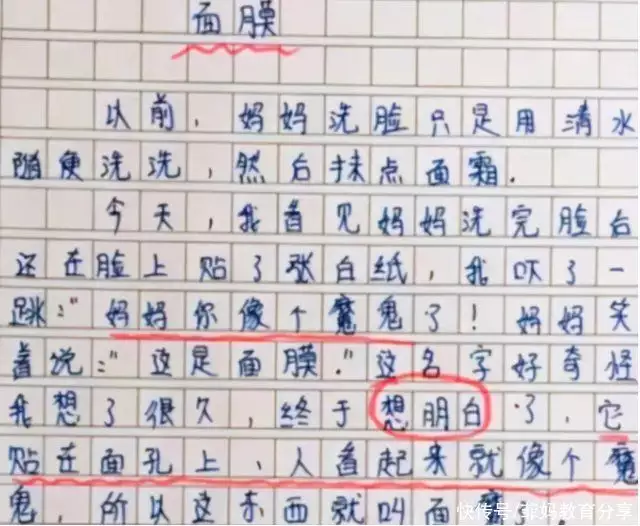 面膜
以前，妈妈洗脸只是用清水
随便洗洗，然后抹点面霜.
今天，我看见妈妈洗完脸后
还在脸上贴了张白纸，我吓了一
跳："妈妈你像个魔鬼了！妈妈笑
着说："这是面膜."这名字好奇怪
我想了很久，终于想明白了，它
贴在面孔上，人看起来就像个魔
鬼，所以这东西就叫面
快传号/菲妈教育分享